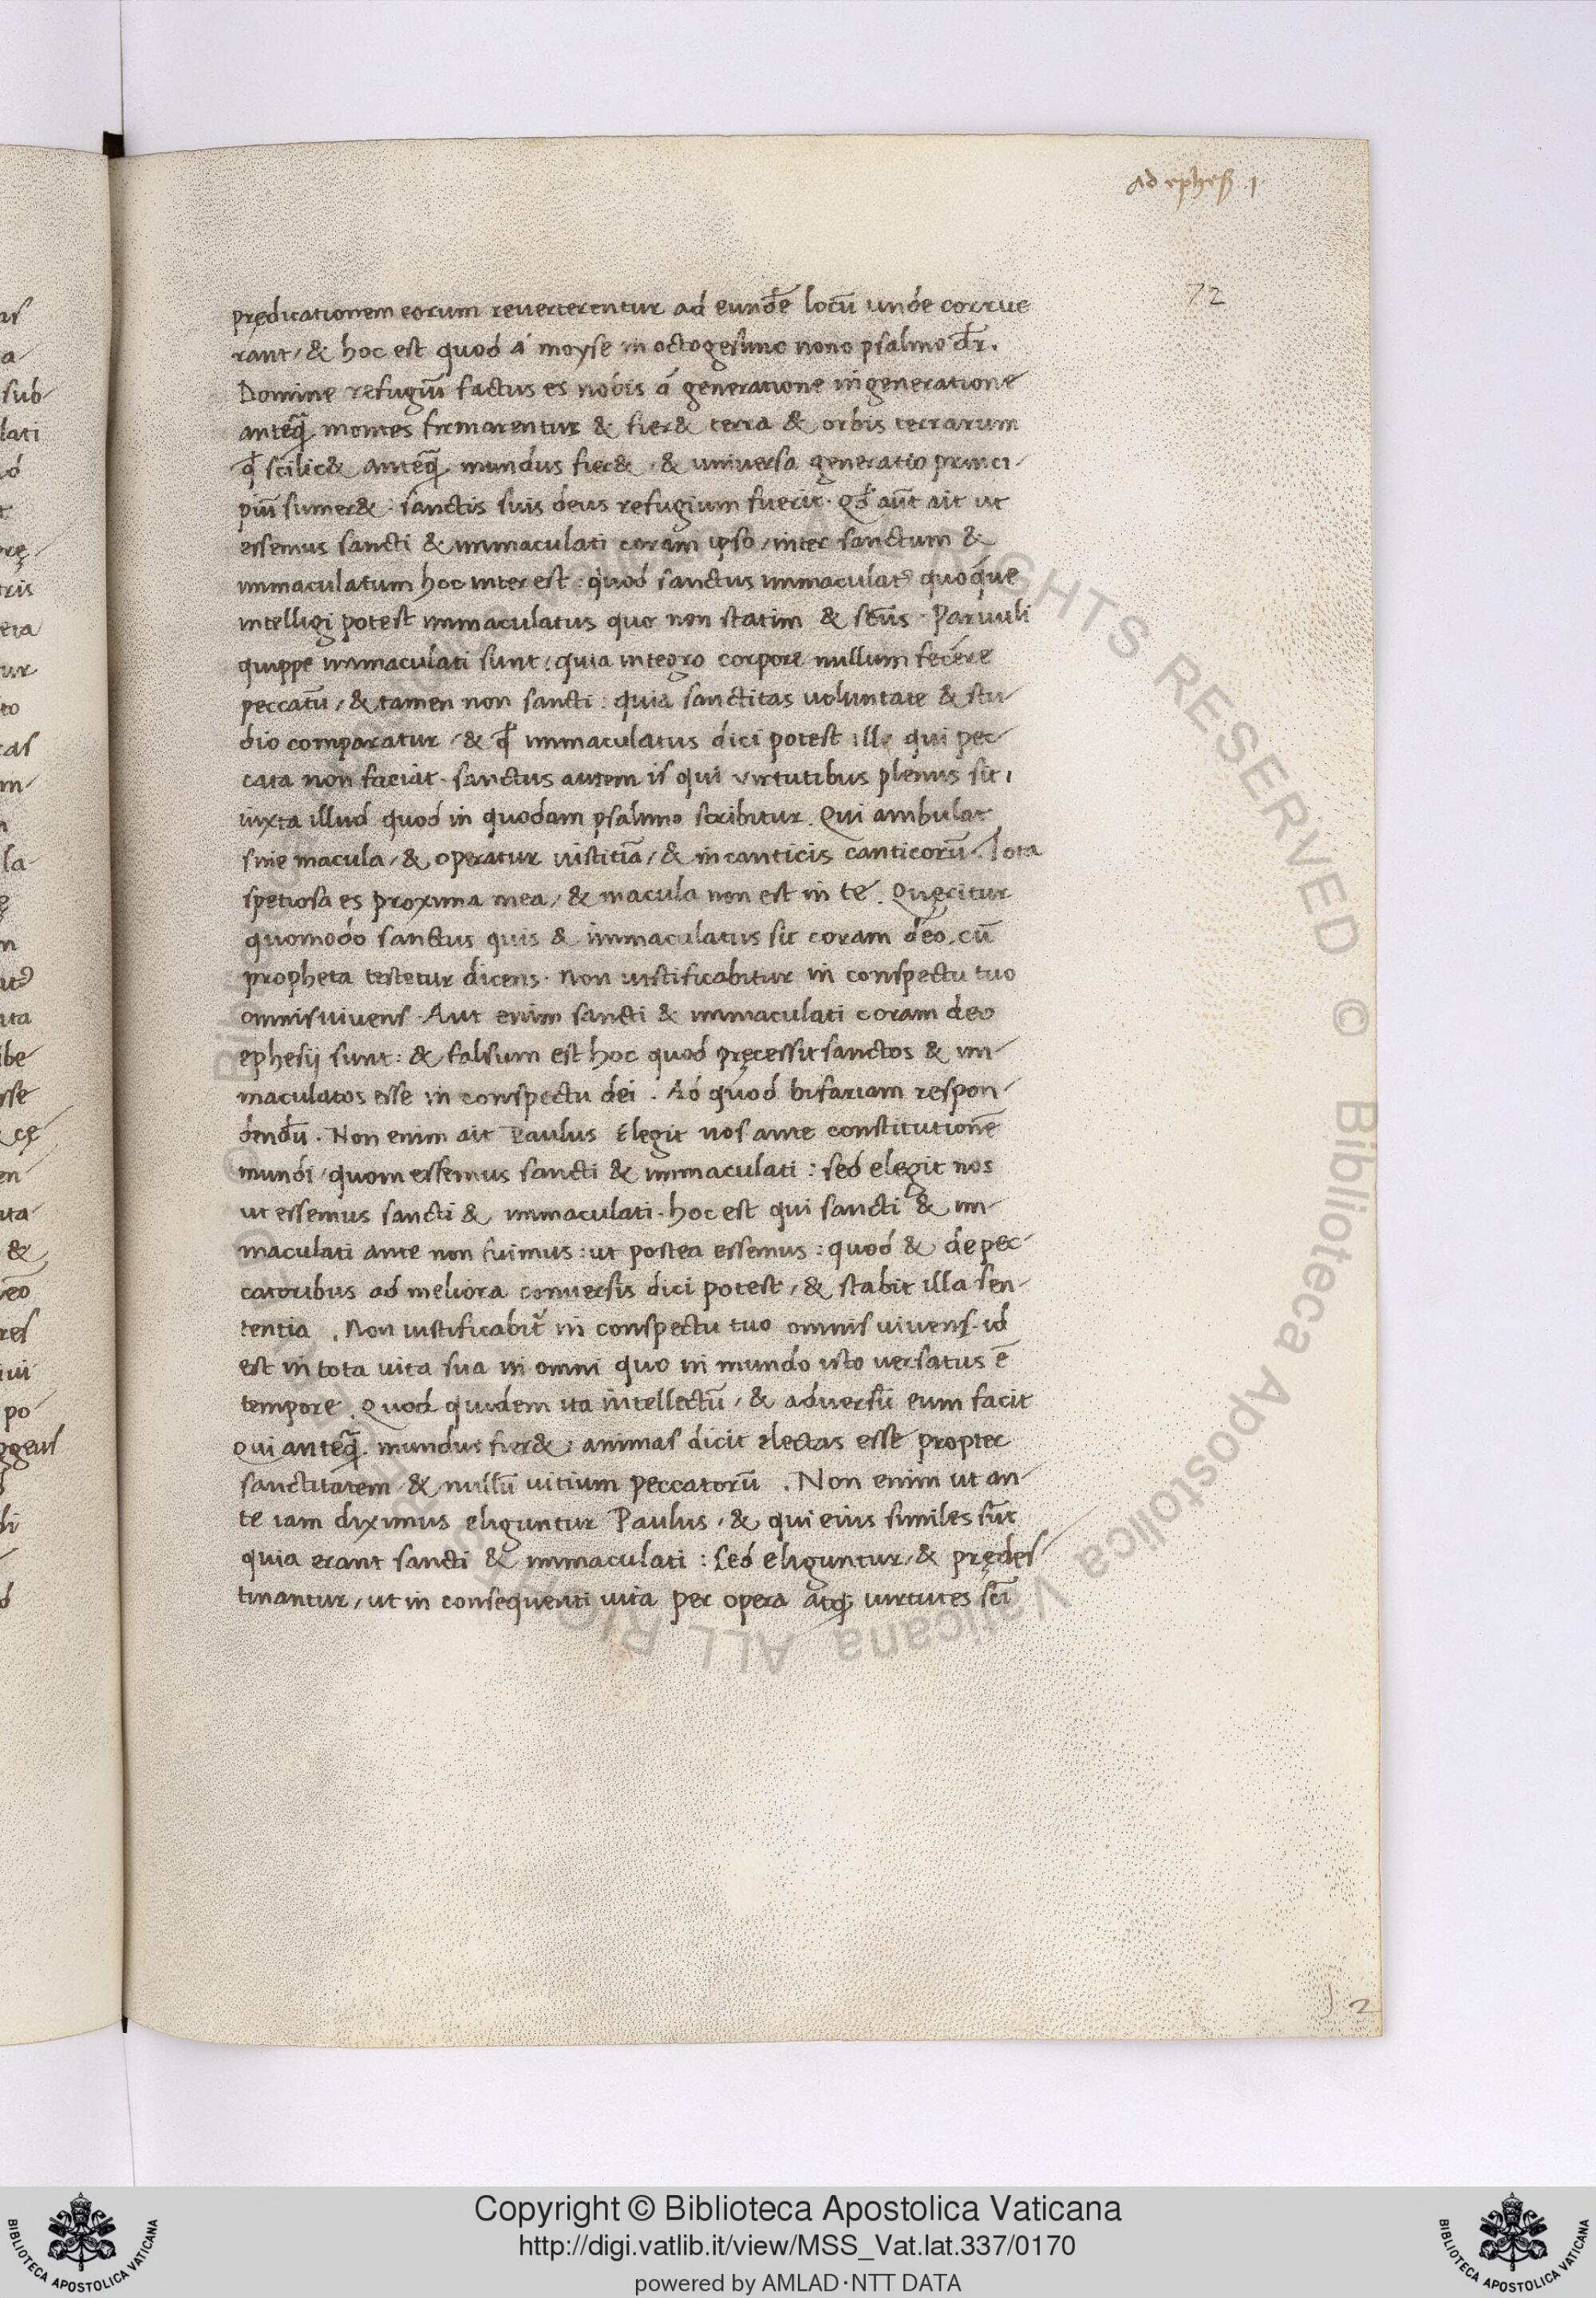 Ad ephes̄ 1
72
prędicationem eorum reuerterentur ad eundē locū unde corrue
rant, & hoc est quod a moyse in octogesimo nono psalmo dr̄.
Domine refugiū factus es nobis a generatione in generatione
anteq̄ montes firmarentur & fier& terra & orbis terrarum
qđ scilic& anteq̄ mundus fier& & uniuersa generatio princi-
piū sumer& : sanctis suis deus refugium fuerit. Qđ aūt ait ut
essemus sancti & immaculati coram ipso, inter sanctum &
immaculatum hoc interest : quod sanctus immaculatꝰ quoque
intelligi potest immaculatus quo non statim & sc̄us. Paruuli
quippe immaculati sunt : quia integro corpore nullum fecere
peccatū, & tamen non sancti : quia sanctitas uoluntate & stu-
dio comparatur, & qđ immaculatus dici potest ille qui pec-
cata non faciat. sanctus autem is qui virtutibus plenus sit,
iuxta illud quod in quodam psalmo scribitur. Qui ambulat
sine macula, & operatur iustitiā, & in canticis canticorū. Tota
spetiosa es proxima mea, & macula non est in te. Quęritur
quomodo sanctus quis & immaculatus sit coram deo, cū
propheta testetur dicens. Non iustificabitur in conspectu tuo
omnis uiuens. Aut enim sancti & immaculati coram deo
ephesij sunt : & falsum est hoc quod pręcessit sanctos & im-
maculatos esse in conspectu dei. Ad quod bifariam respon-
dendū. Non enim ait Paulus Elegit nos ante constitutionē
mundi, quom essemus sancti & immaculati : sed elegit nos
ut essemus sancti & immaculati. hoc est qui sancti & im-
maculati ante non fuimus : ut postea essemus : quod & de pec-
catoribus ad meliora conuersis dici potest, & stabit illa sen-
tentia . Non iustificabit̄ in conspectu tuo omnis uiuens. id
est in tota uita sua in omni quo in mundo isto uersatus ē
tempore. Quod quidem ita intellectū, & aduersū eum facit
qui anteq̄ mundus fier& : animas dicit electas esse propter
sanctitatem & nullū uitium peccatorū . Non enim ut an-
te iam diximus eliguntur Paulus, & qui eius similes sūt
quia erant sancti & immaculati : sed eliguntur, & prędes
tinantur, ut in consequenti uita per opera atq; uirtutes sc̄i
ALL RIGHTS RESERVED © Biblioteca Apostolica Vaticana
Copyright © Biblioteca Apostolica Vaticana
http://digi.vatlib.it/view/MSS_Vat.lat.337/0170
powered by AMLAD·NTT DATA
BIBLIOTECA APOSTOLICA VATICANA
BIBLIOTECA APOSTOLICA VATICANA